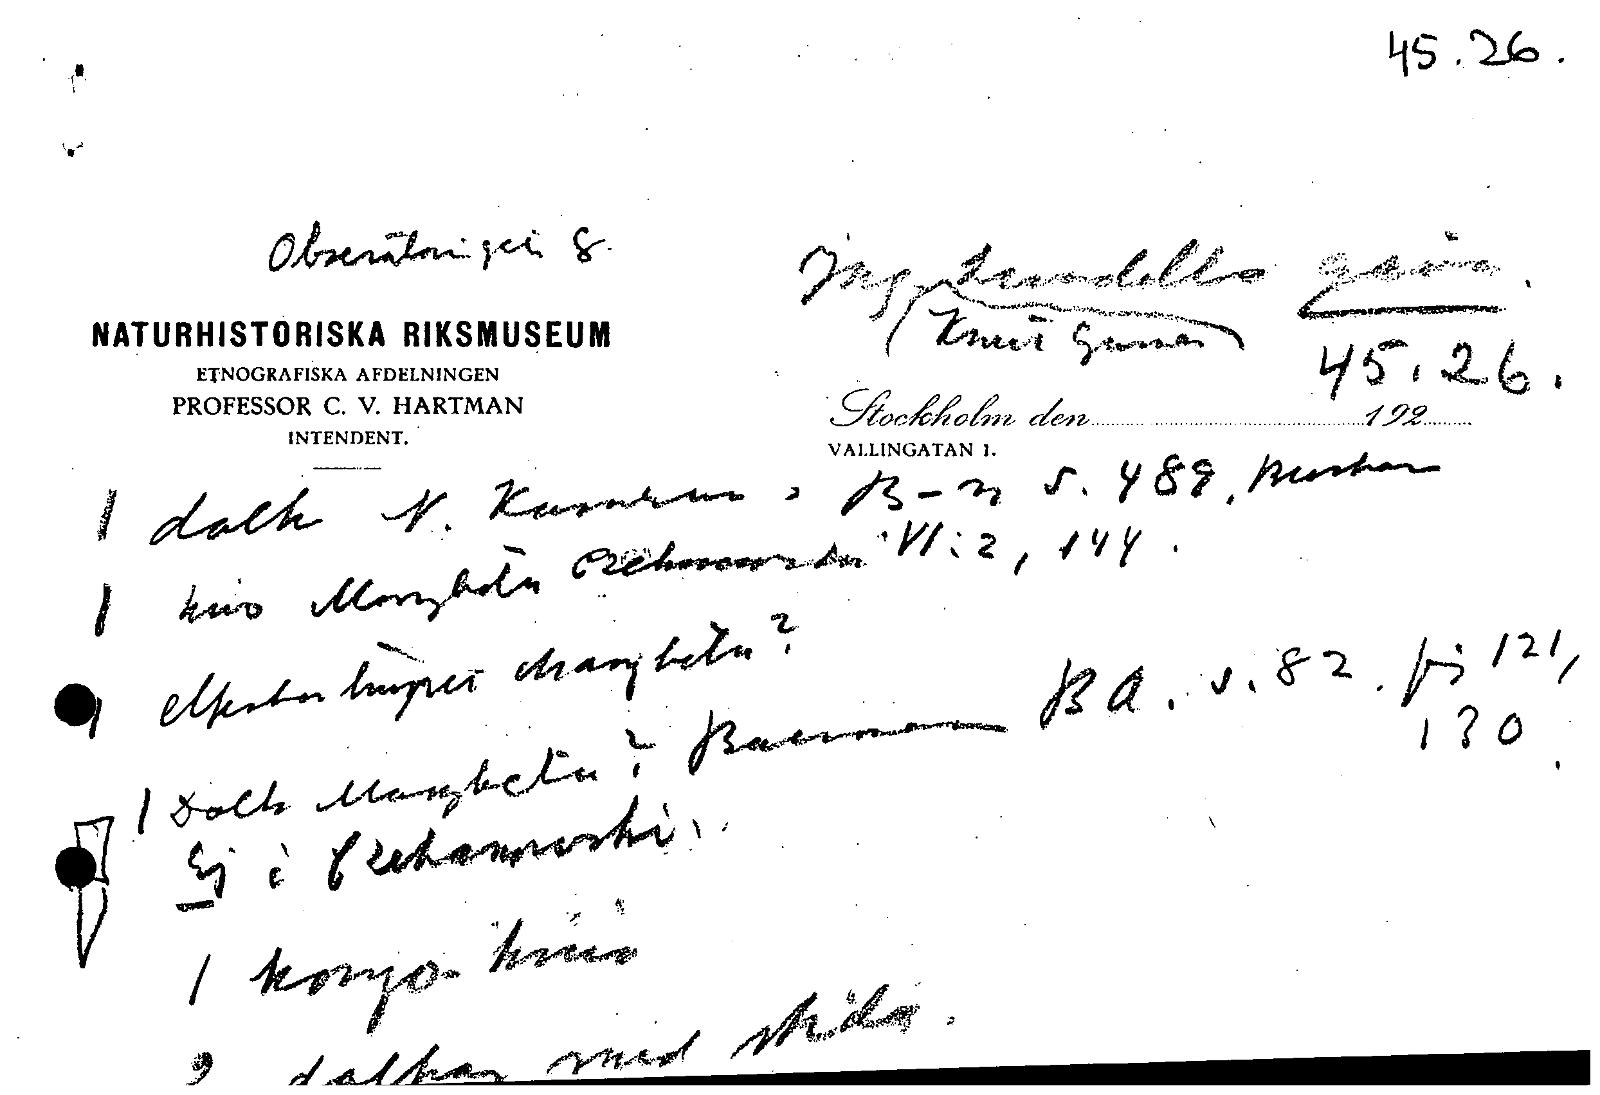 45.26.
Observatoriegat. 8.
Ing. Lundells gåva.
(Knut Gunnar)
NATURHISTORISKA RIKSMUSEUM
ETNOGRAFISKA AFDELNINGEN
PROFESSOR C. V. HARTMAN
INTENDENT.
45.26.
Stockholm den 192
VALLINGATAN 1.
1 dolk N. Kamerun, B-m s. 489,
1 kniv Mangbetu Czekanowski VI:2, 144.
1 Mangbetu?
1 Dolk Mangbetu? Baermann BA. s. 82. fig 121,
130.
Ej i Czekanowski.
1 kongo-kniv
2 dolkar med skida.